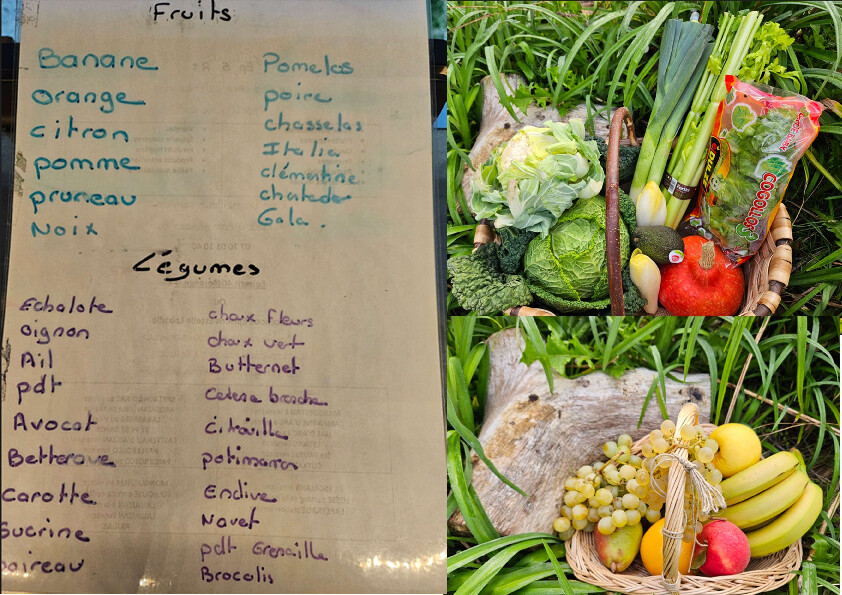 Fruits
Banane
Orange
citron
pomme
pruneau
Noix
Pomelos
poire
chasselas
Italia
clémentine
Gala.
Légumes
Echalote
oignon
Ail
pdt
Avocat
Betterave
carotte
Sucrine
poireau
choux fleurs
choux vert
Butternet
citrouille
potimarron
Endive
Navet
pdt Grenaille
Brocolis
COGOLLOS